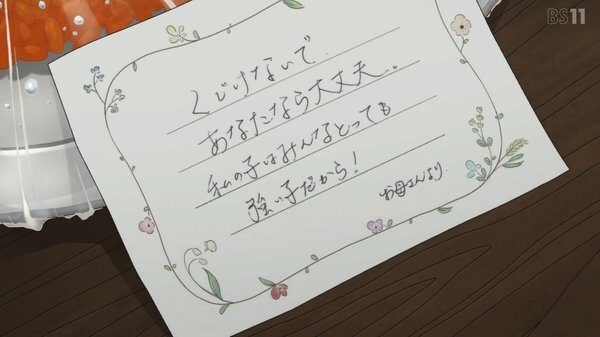 BS11
くじけないで
あなたなら大丈夫。
私の子はみんなとっても
強い子だから！
お母さんより